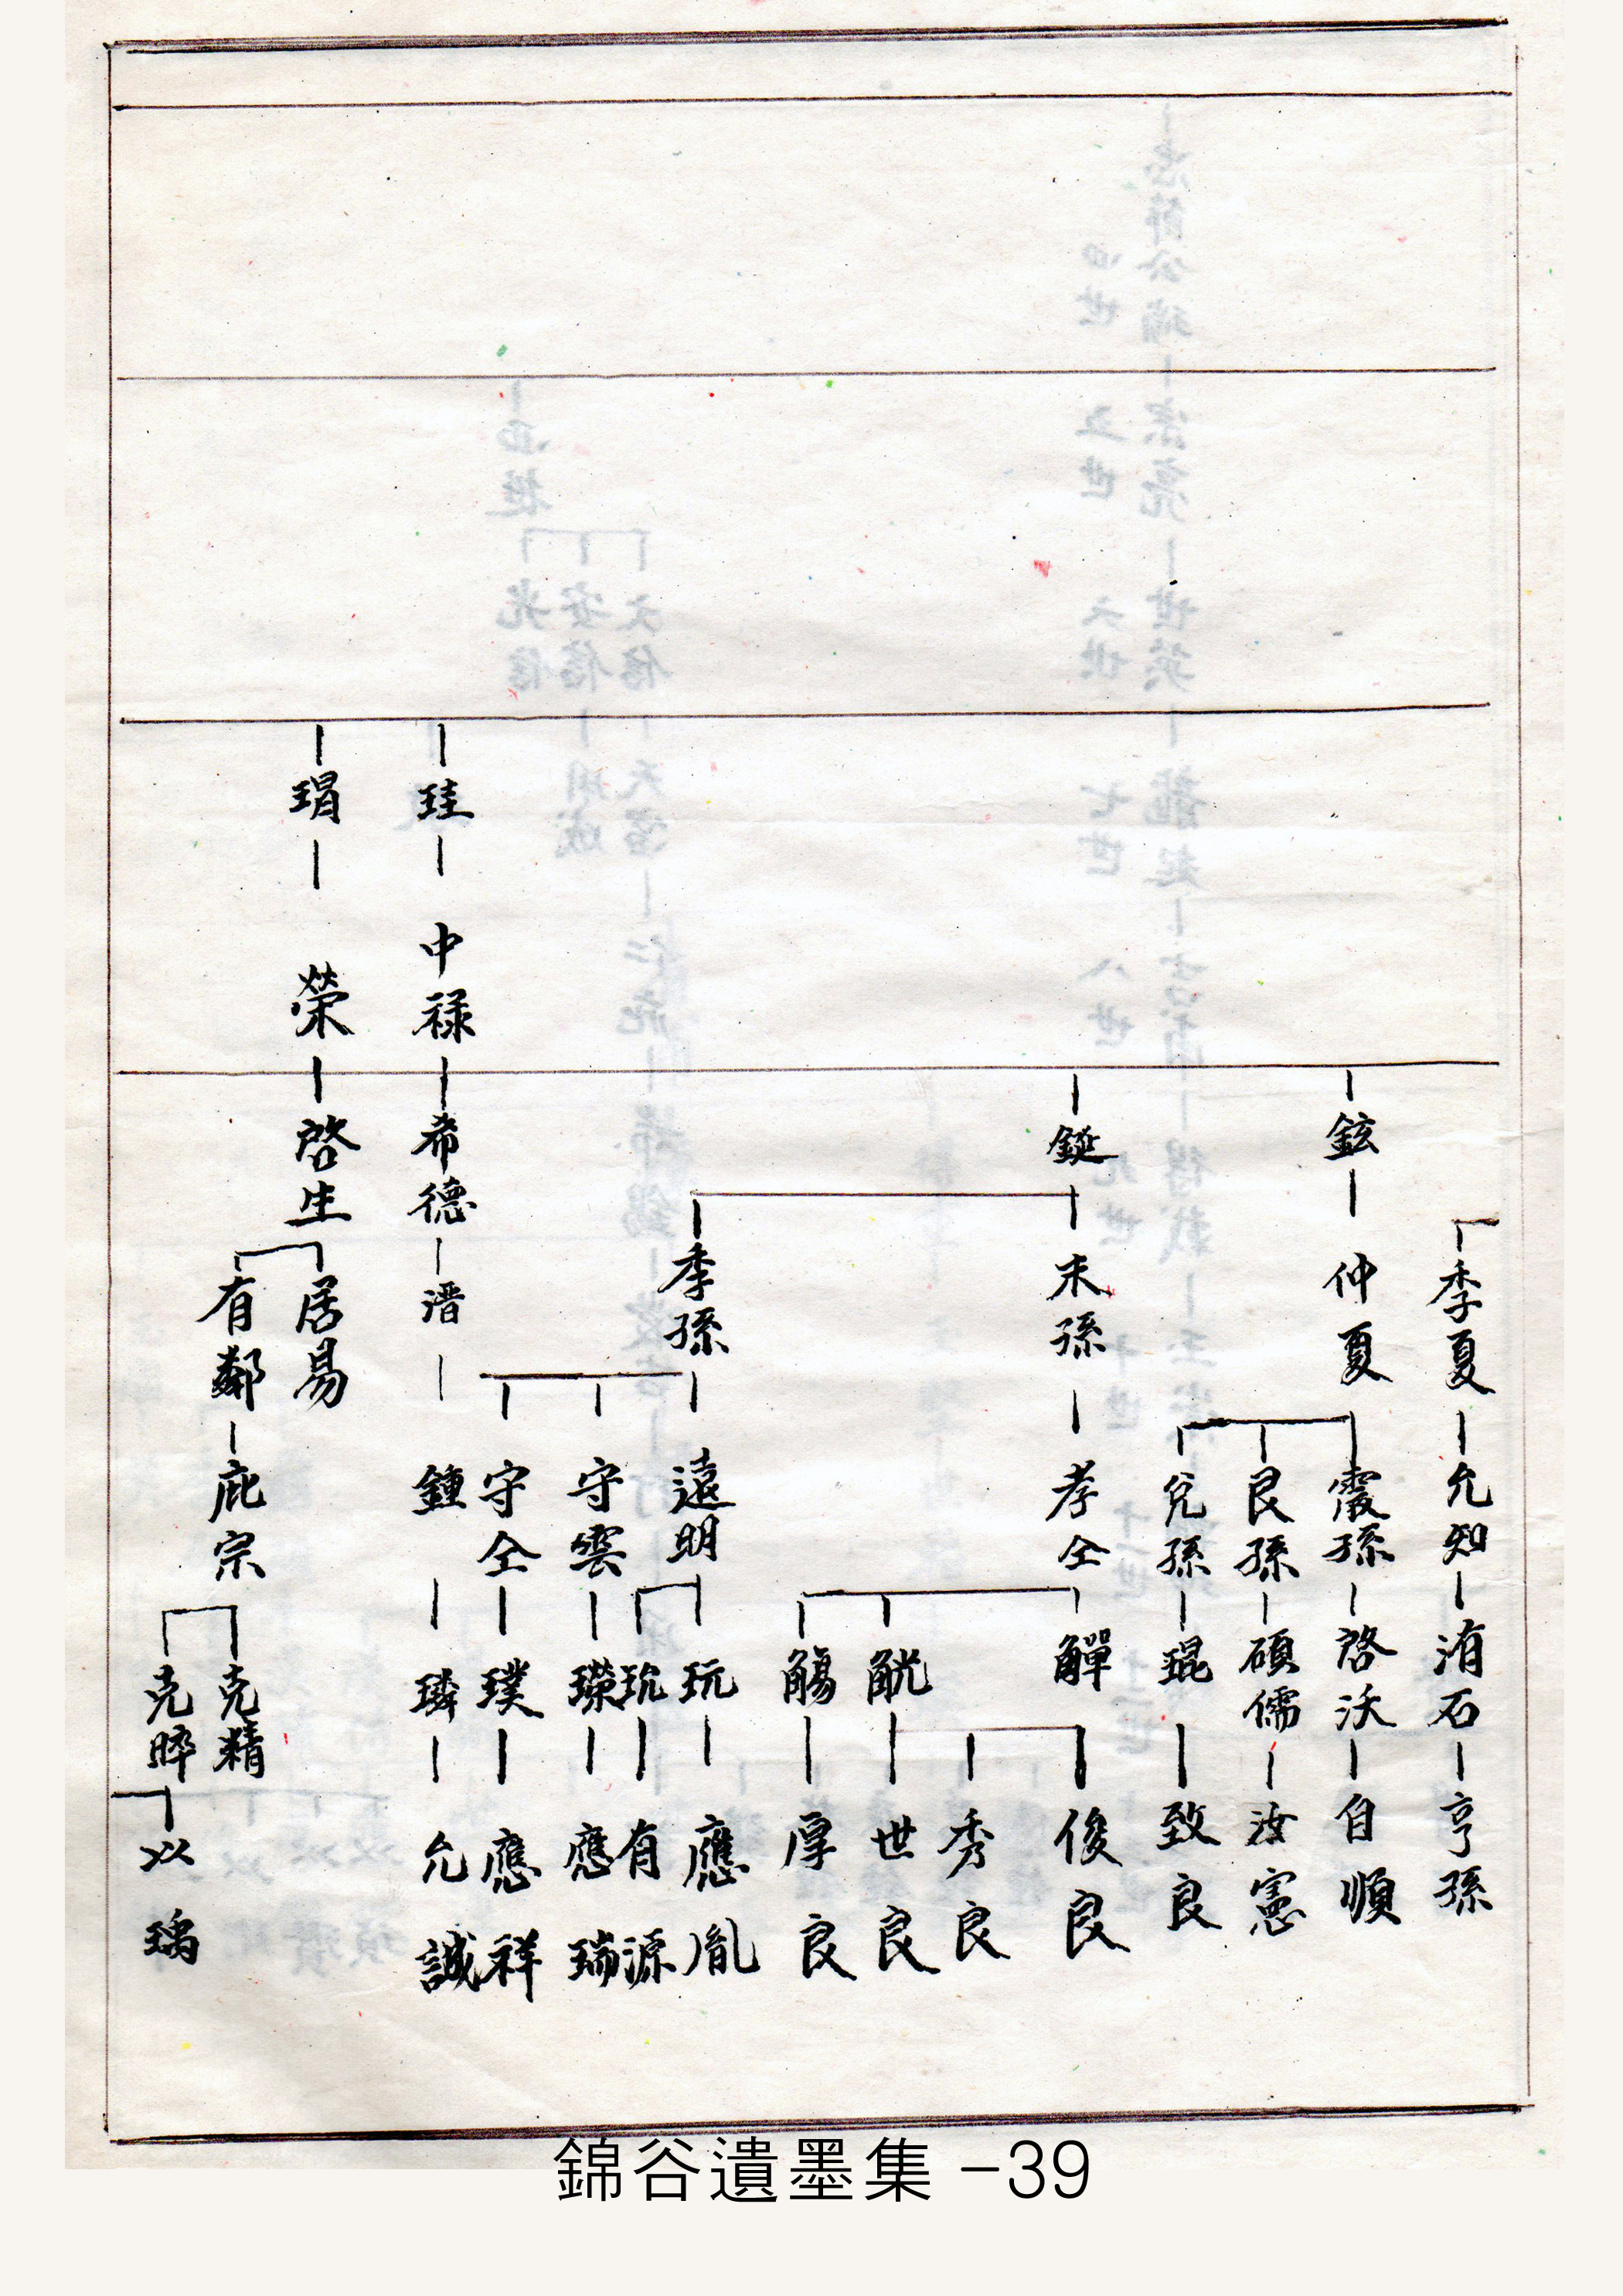 季夏 允知 洧石 亨孫
鉉 仲夏
霞孫 啓沃 自順
艮孫 碩儒 汝憲
兌孫 琨 致良
銋 末孫 孝仝
觶 俊良
秀良
觥 世良
觴 厚良
季孫
遠明 玩 應胤
有源
守雲 應瑞
守仝 璞 應祥
珪 中祿 希德 溍 鍾 璘 允誠
瑁 榮 啓生
居易
有鄰 庇宗
克精
克晬
以瑀
錦谷遺墨集 -39